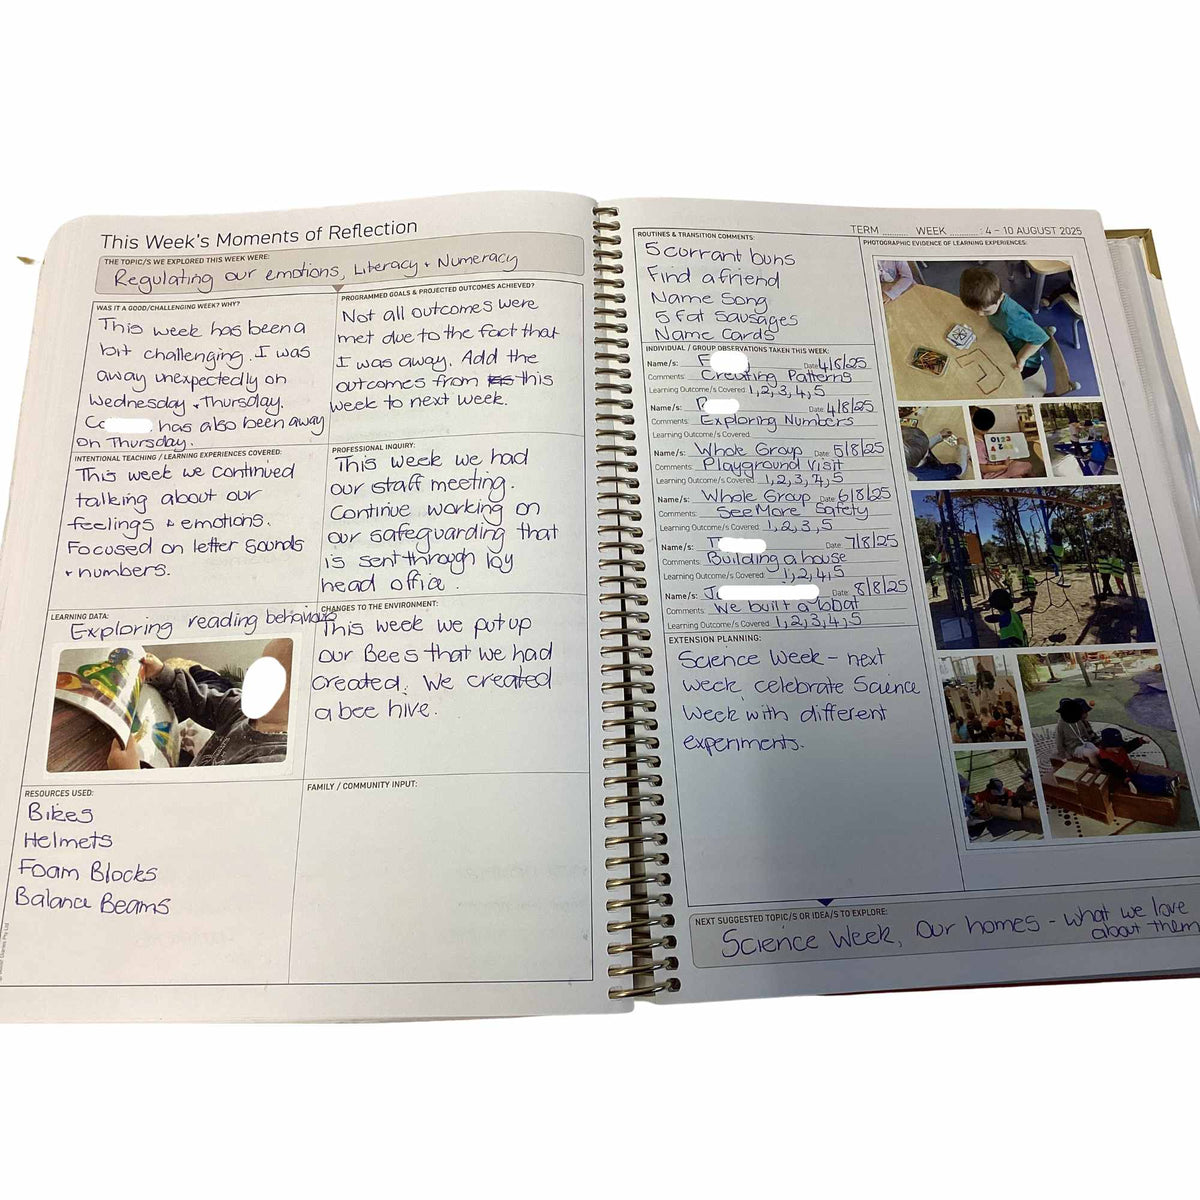 This Week's Moments of Reflection
THE TOPIC/S WE EXPLORED THIS WEEK WERE:
Regulating our emotions, Literacy + Numeracy
WAS IT A GOOD/CHALLENGING WEEK? WHY?
This week has been a
bit challenging. I was
away unexpectedly on
Wednesday + Thursday.
C has also been away
on Thursday.
PROGRAMMED GOALS & PROJECTED OUTCOMES ACHIEVED?
Not all outcomes were
met due to the fact that
I was away. Add the
outcomes from this
week to next week.
INTENTIONAL TEACHING / LEARNING EXPERIENCES COVERED:
This week we continued
talking about our
feelings & emotions.
Focused on letter sounds
+ numbers.
PROFESSIONAL INQUIRY:
This week we had
our staff meeting.
Continue working on
our safeguarding that
is sent through by
head office.
LEARNING DATA:
Exploring reading behaviours
CHANGES TO THE ENVIRONMENT:
This week we put up
our Bees that we had
created. We created
a bee hive.
RESOURCES USED:
Bikes
Helmets
Foam Blocks
Balance Beams
FAMILY / COMMUNITY INPUT:
TERM ........ WEEK ........ : 4 - 10 AUGUST 2025
ROUTINES & TRANSITION COMMENTS:
5 currant buns
Find a friend
Name Song
5 Fat Sausages
Name Cards
INDIVIDUAL / GROUP OBSERVATIONS TAKEN THIS WEEK:
Name/s: Date: 4/8/25
Comments: Creating Patterns
Learning Outcome/s Covered: 1, 2, 3, 4, 5
Name/s: Date: 4/8/25
Comments: Exploring Numbers
Learning Outcome/s Covered:
Name/s: Whole Group Date: 5/8/25
Comments: Playground Visit
Learning Outcome/s Covered: 1, 2, 3, 4, 5
Name/s: Whole Group Date: 6/8/25
Comments: See More Safety
Learning Outcome/s Covered: 1, 2, 3, 5
Name/s: T Date: 7/8/25
Comments: Building a house
Learning Outcome/s Covered: 1, 2, 4, 5
Name/s: Jo Date: 8/8/25
Comments: We built a boat
Learning Outcome/s Covered: 1, 2, 3, 4, 5
EXTENSION PLANNING:
Science Week - next
week, celebrate Science
Week with different
experiments.
PHOTOGRAPHIC EVIDENCE OF LEARNING EXPERIENCES:
NEXT SUGGESTED TOPIC/S OR IDEA/S TO EXPLORE:
Science Week, Our homes - what we love
about them